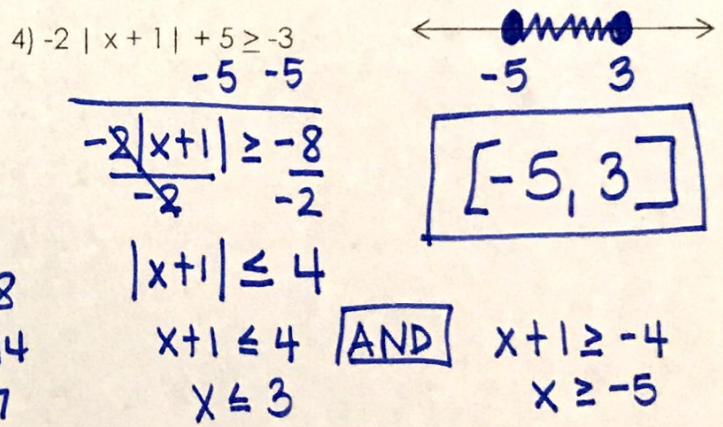 4) -2 | x + 1 | + 5 ≥ -3
-5 -5
-2|x+1| ≥ -8
-2 -2
|x+1| ≤ 4
x+1 ≤ 4 AND x+1 ≥ -4
x ≤ 3 x ≥ -5
-5 3
[-5, 3]
8
4
7